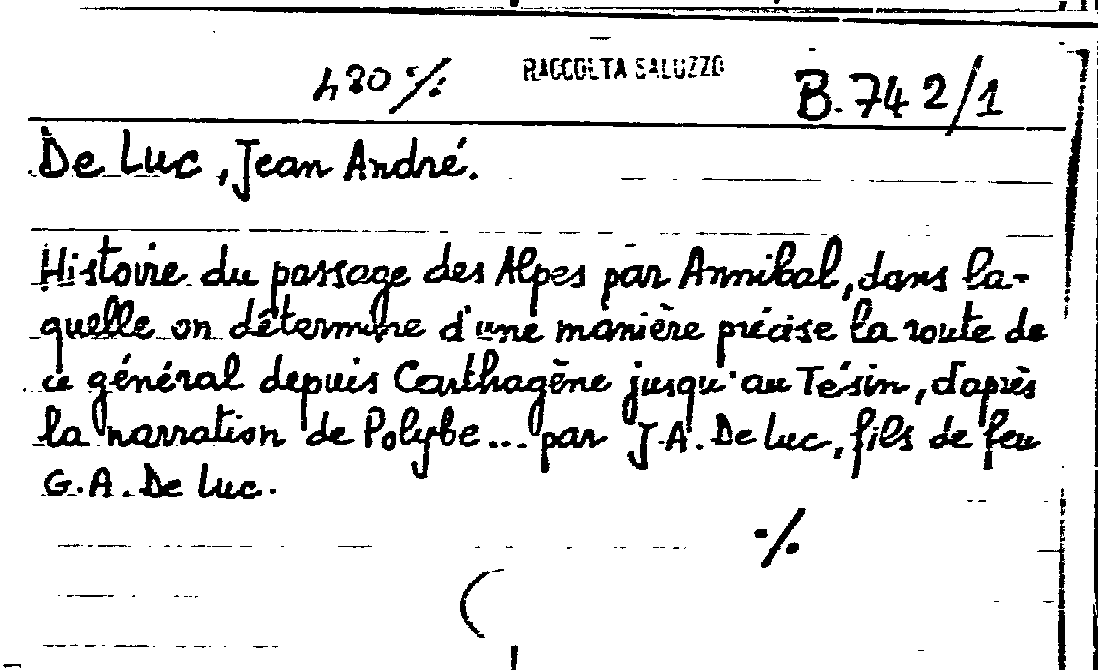 480 ·/· RACCOLTA SALUZZO B.742/1
De Luc, Jean André.
Histoire du passage des Alpes par Annibal, dans la-
quelle on détermine d'une manière précise la route de
ce général depuis Carthagène jusqu'au Tésin, d'après
la narration de Polybe... par J.A. De Luc, fils de feu
G.A. De Luc.
·/·